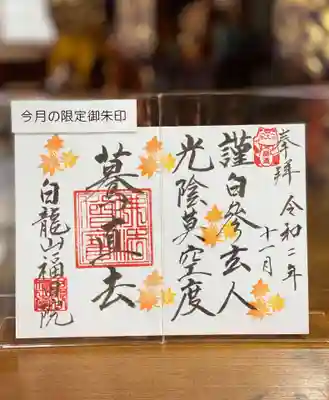 今月の限定御朱印
奉拝 令和二年
十一月
謹白参玄人
光陰莫空度
驀直去
白龍山福寿院